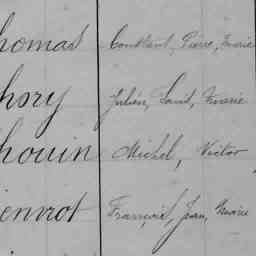 homas Constant, Pierre, Marie
hory Julien, Louis, Marie
houin Michel, Victor
ienvrot François, Jean, Marie